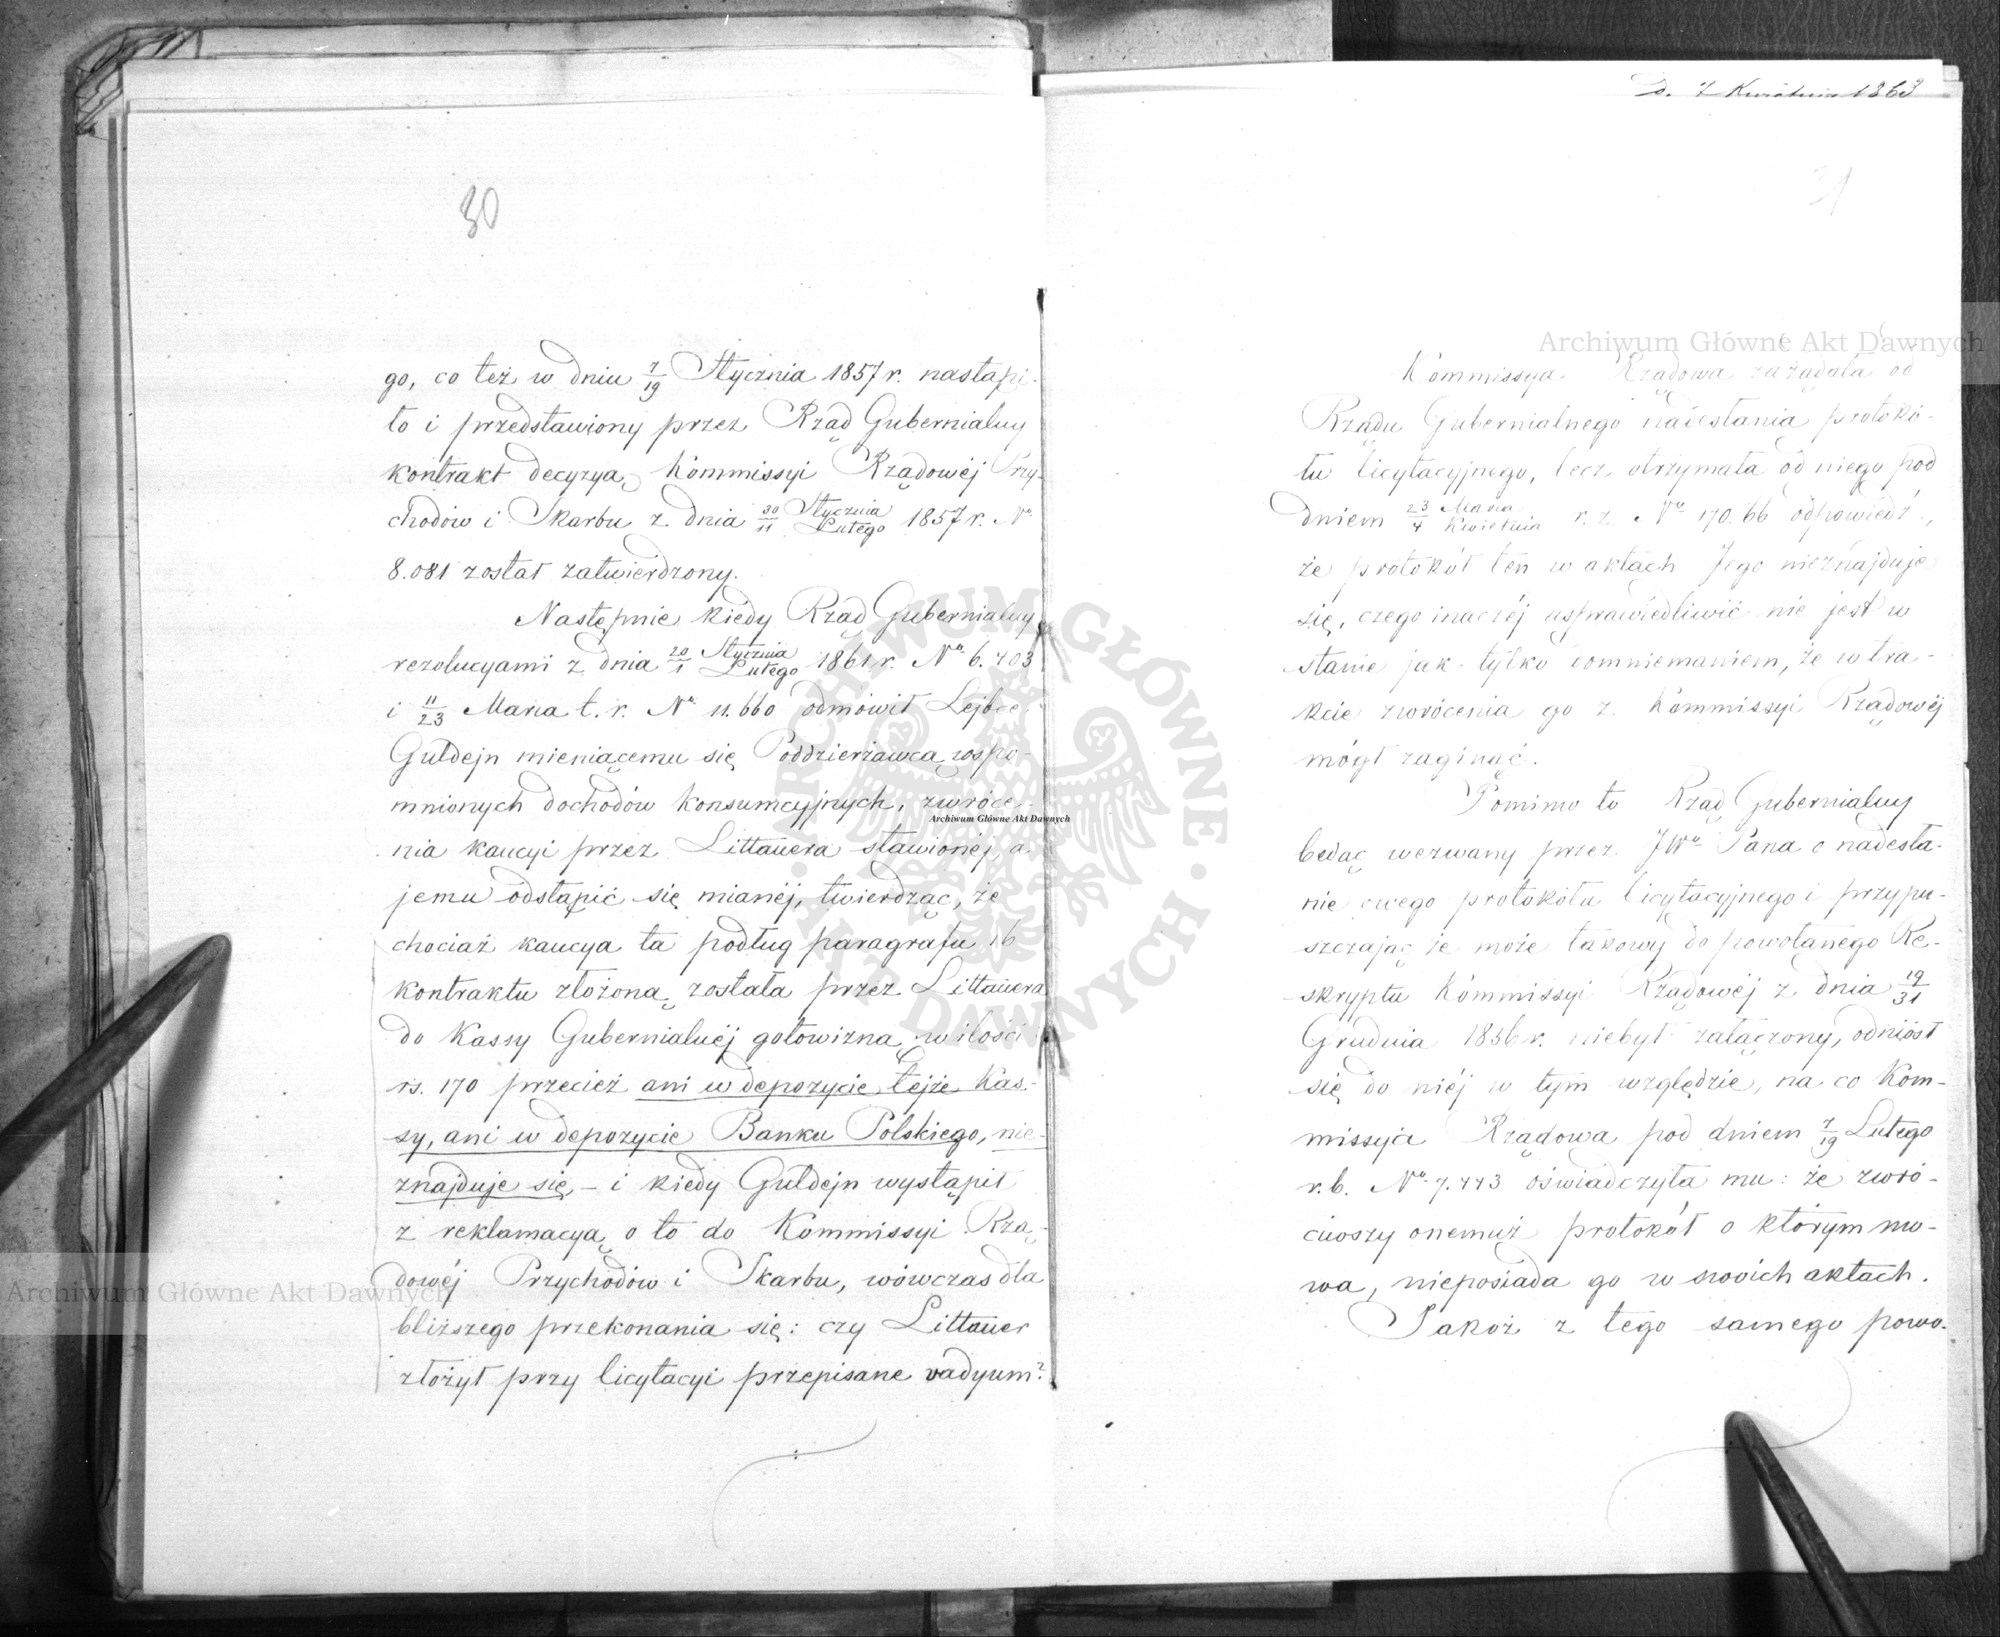 30
go, co też w dniu 7/19 Stycznia 1857 r. nastąpi-
ło i przedstawiony przez Rząd Gubernialny
kontrakt decyzyą Kommissyi Rządowéj Przy-
chodów i Skarbu z dnia 30/11 Stycznia/Lutego 1857 r. No
8.081 został zatwierdzony.
Następnie kiedy Rząd Gubernialny
rezolucyami z dnia 20/1 Stycznia/Lutego 1861 r. No 6.403
i 11/23 Marca t. r. No 11.660 odmówił Lejbce
Guldejn mieniącemu się Poddzierżawcą wspo-
mnionych dochodów konsumcyjnych, zwróce-
nia kaucyi przez Littauera stawionéj, a
jemu odstąpić się mianéj, twierdząc, że
chociaż kaucya ta podług paragrafu 16
kontraktu złożoną została przez Littauera
do Kassy Gubernialnéj gotowizną w ilości
rs. 170 przecież ani w depozycie tejże Kas-
sy, ani w depozycie Banku Polskiego, nie-
znajduje się, – i kiedy Guldejn wystąpił
z reklamacyą o to do Kommissyi Rzą-
dowéj Przychodów i Skarbu, wówczas dla
bliższego przekonania się: czy Littauer
złożył przy licytacyi przepisane vadyum?
D. 7 Kwietnia 1863
31
Kommissya Rządowa zażądała od
Rządu Gubernialnego nadesłania protokó-
łu licytacyjnego, lecz otrzymała od niego pod
dniem 23/4 Marca/Kwietnia r. z. No 170.66 odpowiedź,
że protokół ten w aktach Jego nieznajduje
się, czego inaczéj usprawiedliwić nie jest w
stanie jak tylko domniemaniem, że w tra-
kcie zwrócenia go z Kommissyi Rządowéj
mógł zaginąć.
Pomimo to Rząd Gubernialny
będąc wezwany przez JWo Pana o nadesła-
nie owego protokółu licytacyjnego i przypu-
szczając że może takowy do powołanego Re-
skryptu Kommissyi Rządowéj z dnia 19/31
Grudnia 1856 r. niebył załączony, odniósł
się do niéj w tym względzie, na co Kom-
missyia Rządowa pod dniem 7/19 Lutego
r. b. No 7.443 oświadczyła mu: że zwró-
ciwszy onemuż protokół o którym mo-
wa, nieposiada go w swoich aktach.
Jakoż z tego samego powo-
Archiwum Główne Akt Dawnych
Archiwum Główne Akt Dawnych
Archiwum Główne Akt Dawnych
ARCHIWUM GŁÓWNE AKT DAWNYCH